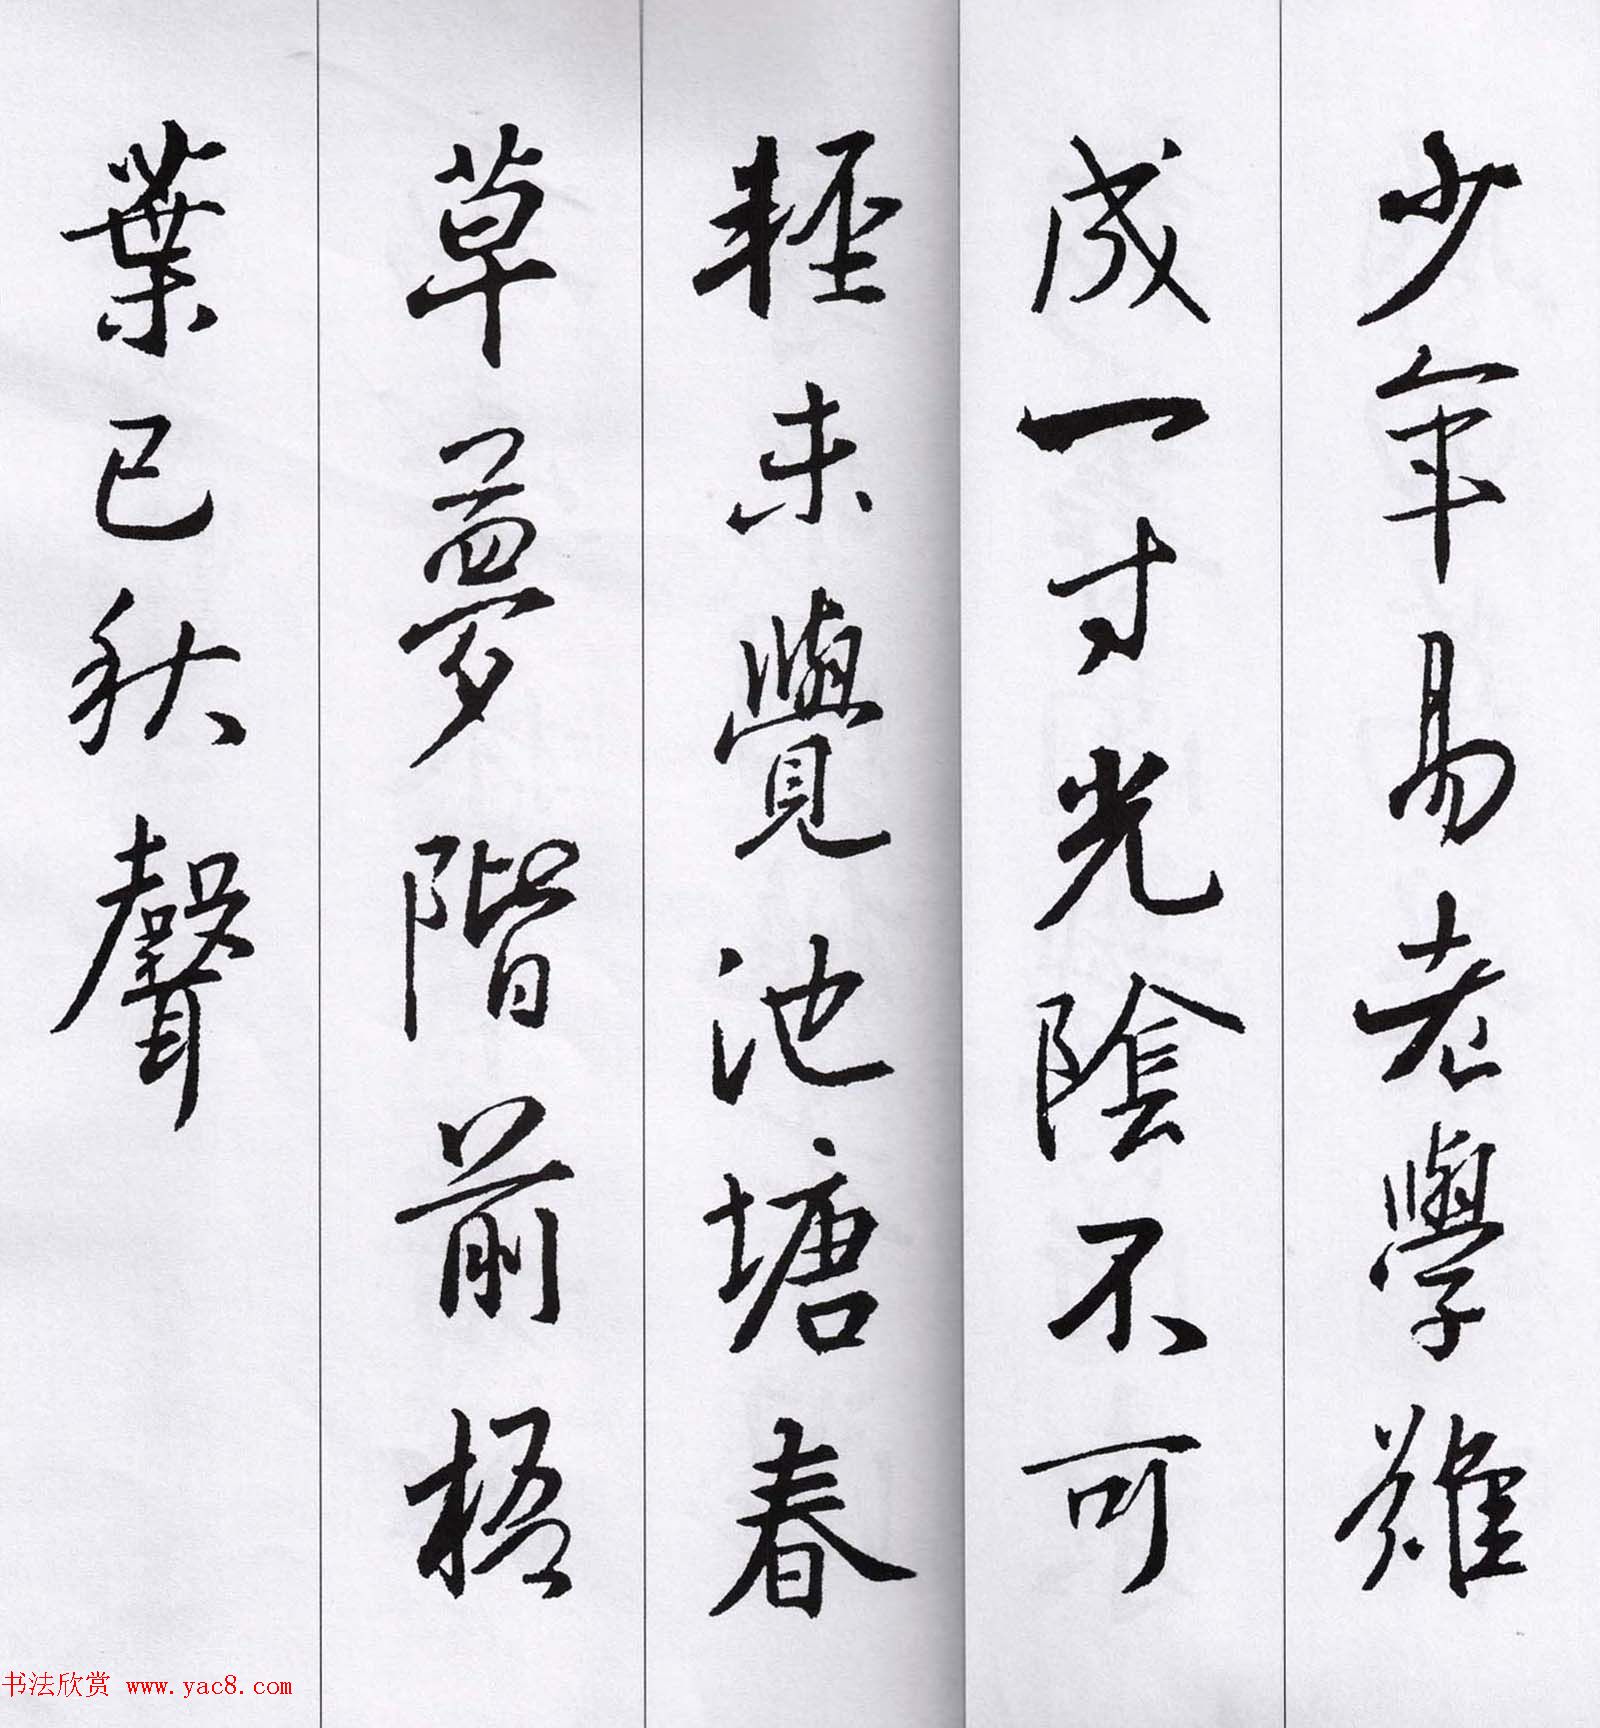 少年易老學難
成一寸光陰不可
輕未覺池塘春
草夢階前梧
葉已秋聲
书法欣赏 www.yac8.com